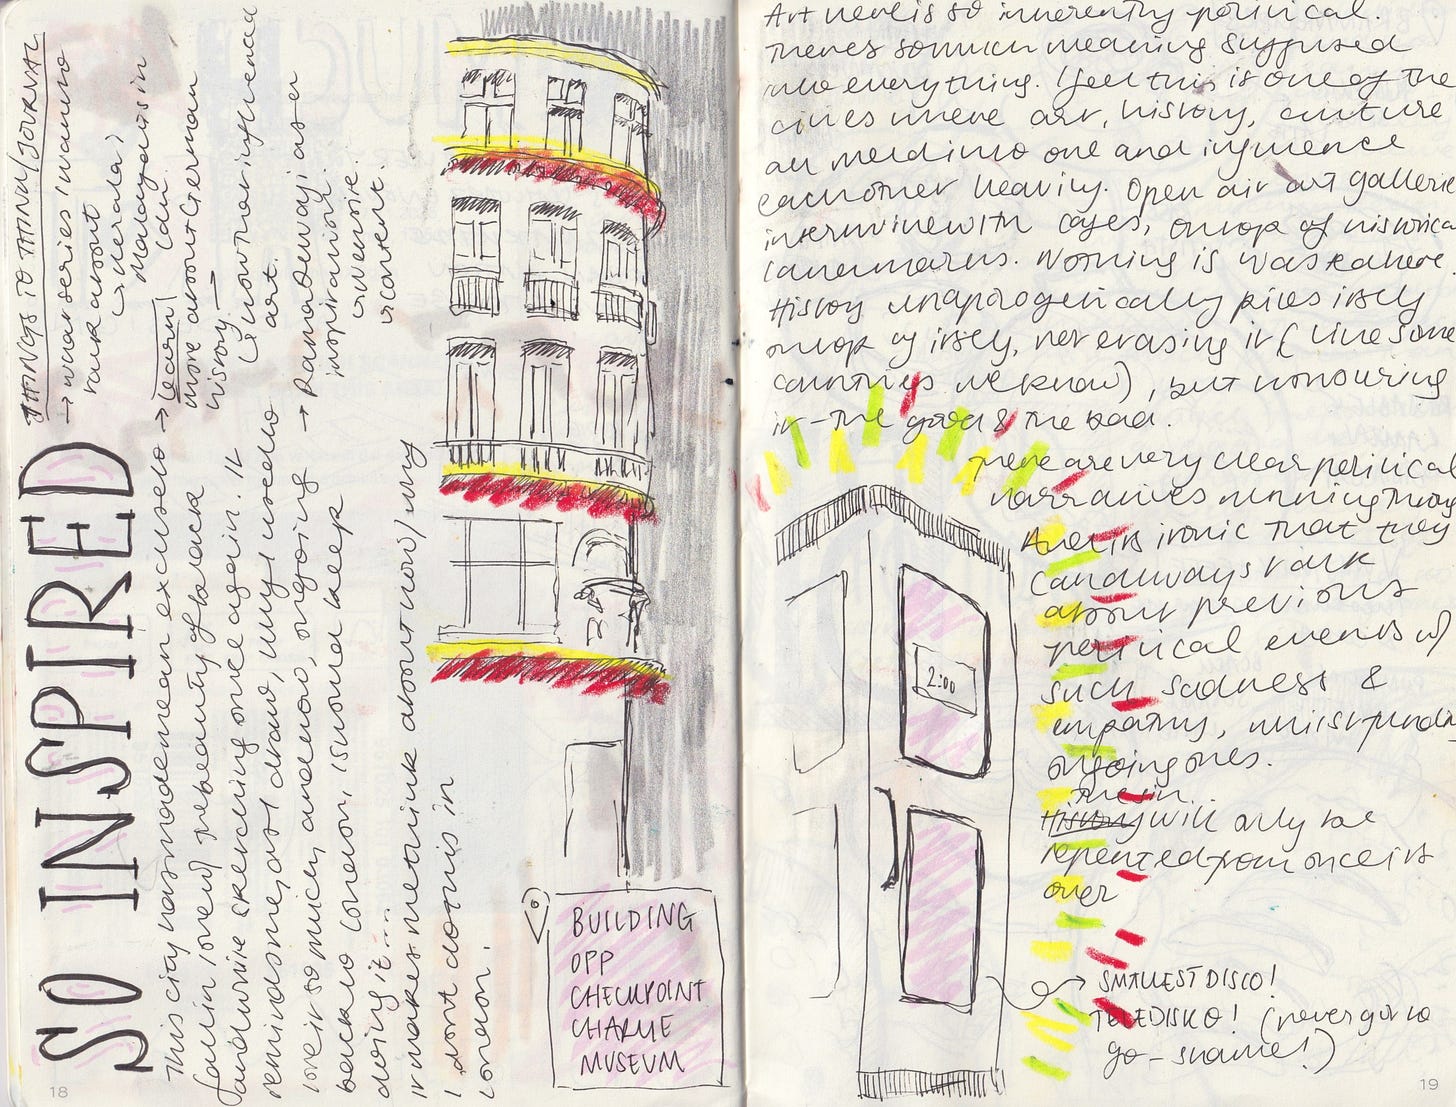 SO INSPIRED
This city has made me an excuse to
fall in love w/ the beauty of black
and white sketching once again. It
reminds me, as I draw, why I used to
love it so much, and also, ongoing
back to London, I should keep
doing it...
It makes me think about how/why
I don't do this in
London.
THINGS TO THINK/JOURNAL
→ what series I want to
talk about
↳ Kerala?
Malayalis in
ldn.
→ learn!
more about German
history —
↳ how that influenced
art.
→ Ramadewaji as an
inspiration.
↳ website.
↳ content.
BUILDING
OPP
CHECKPOINT
CHARLIE
MUSEUM
18
Art here is so inherently political.
There's so much meaning suffused
into everything. I feel this is one of the
cities where art, history, culture
all meld into one and influence
each other heavily. Open air art galleries
intertwine with cafes, on top of historical
landmarks. Nothing is wasted here.
History unapologetically piles itself
on top of itself, not erasing it (like some
countries we know), but honouring
it - the good & the bad.
There are very clear political
narratives running through
And it's ironic that they
can always talk
about previous
political events w/
such sadness &
empathy, whilst funding
ongoing ones.
Then...
History will only be
repented from once it's
over
2:00
SMALLEST DISCO!
TELEDISKO! (never got to
go - shame!)
19